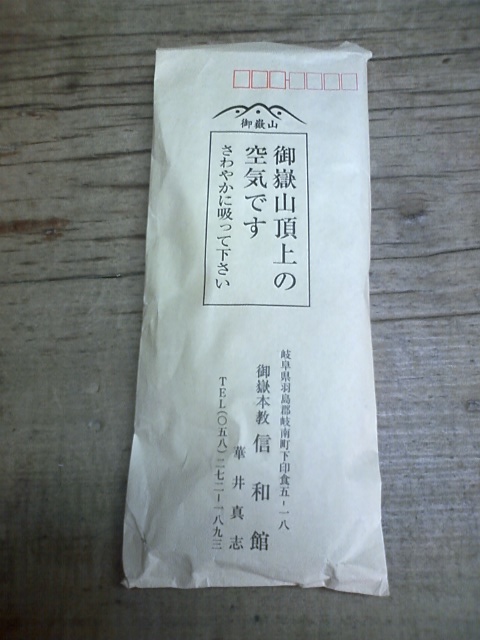 御嶽山
御嶽山頂上の
空気です
さわやかに吸って下さい
岐阜県羽島郡岐南町下印食五-一八
御嶽本教 信和館
華井真志
TEL(〇五八)二七二-一八九三